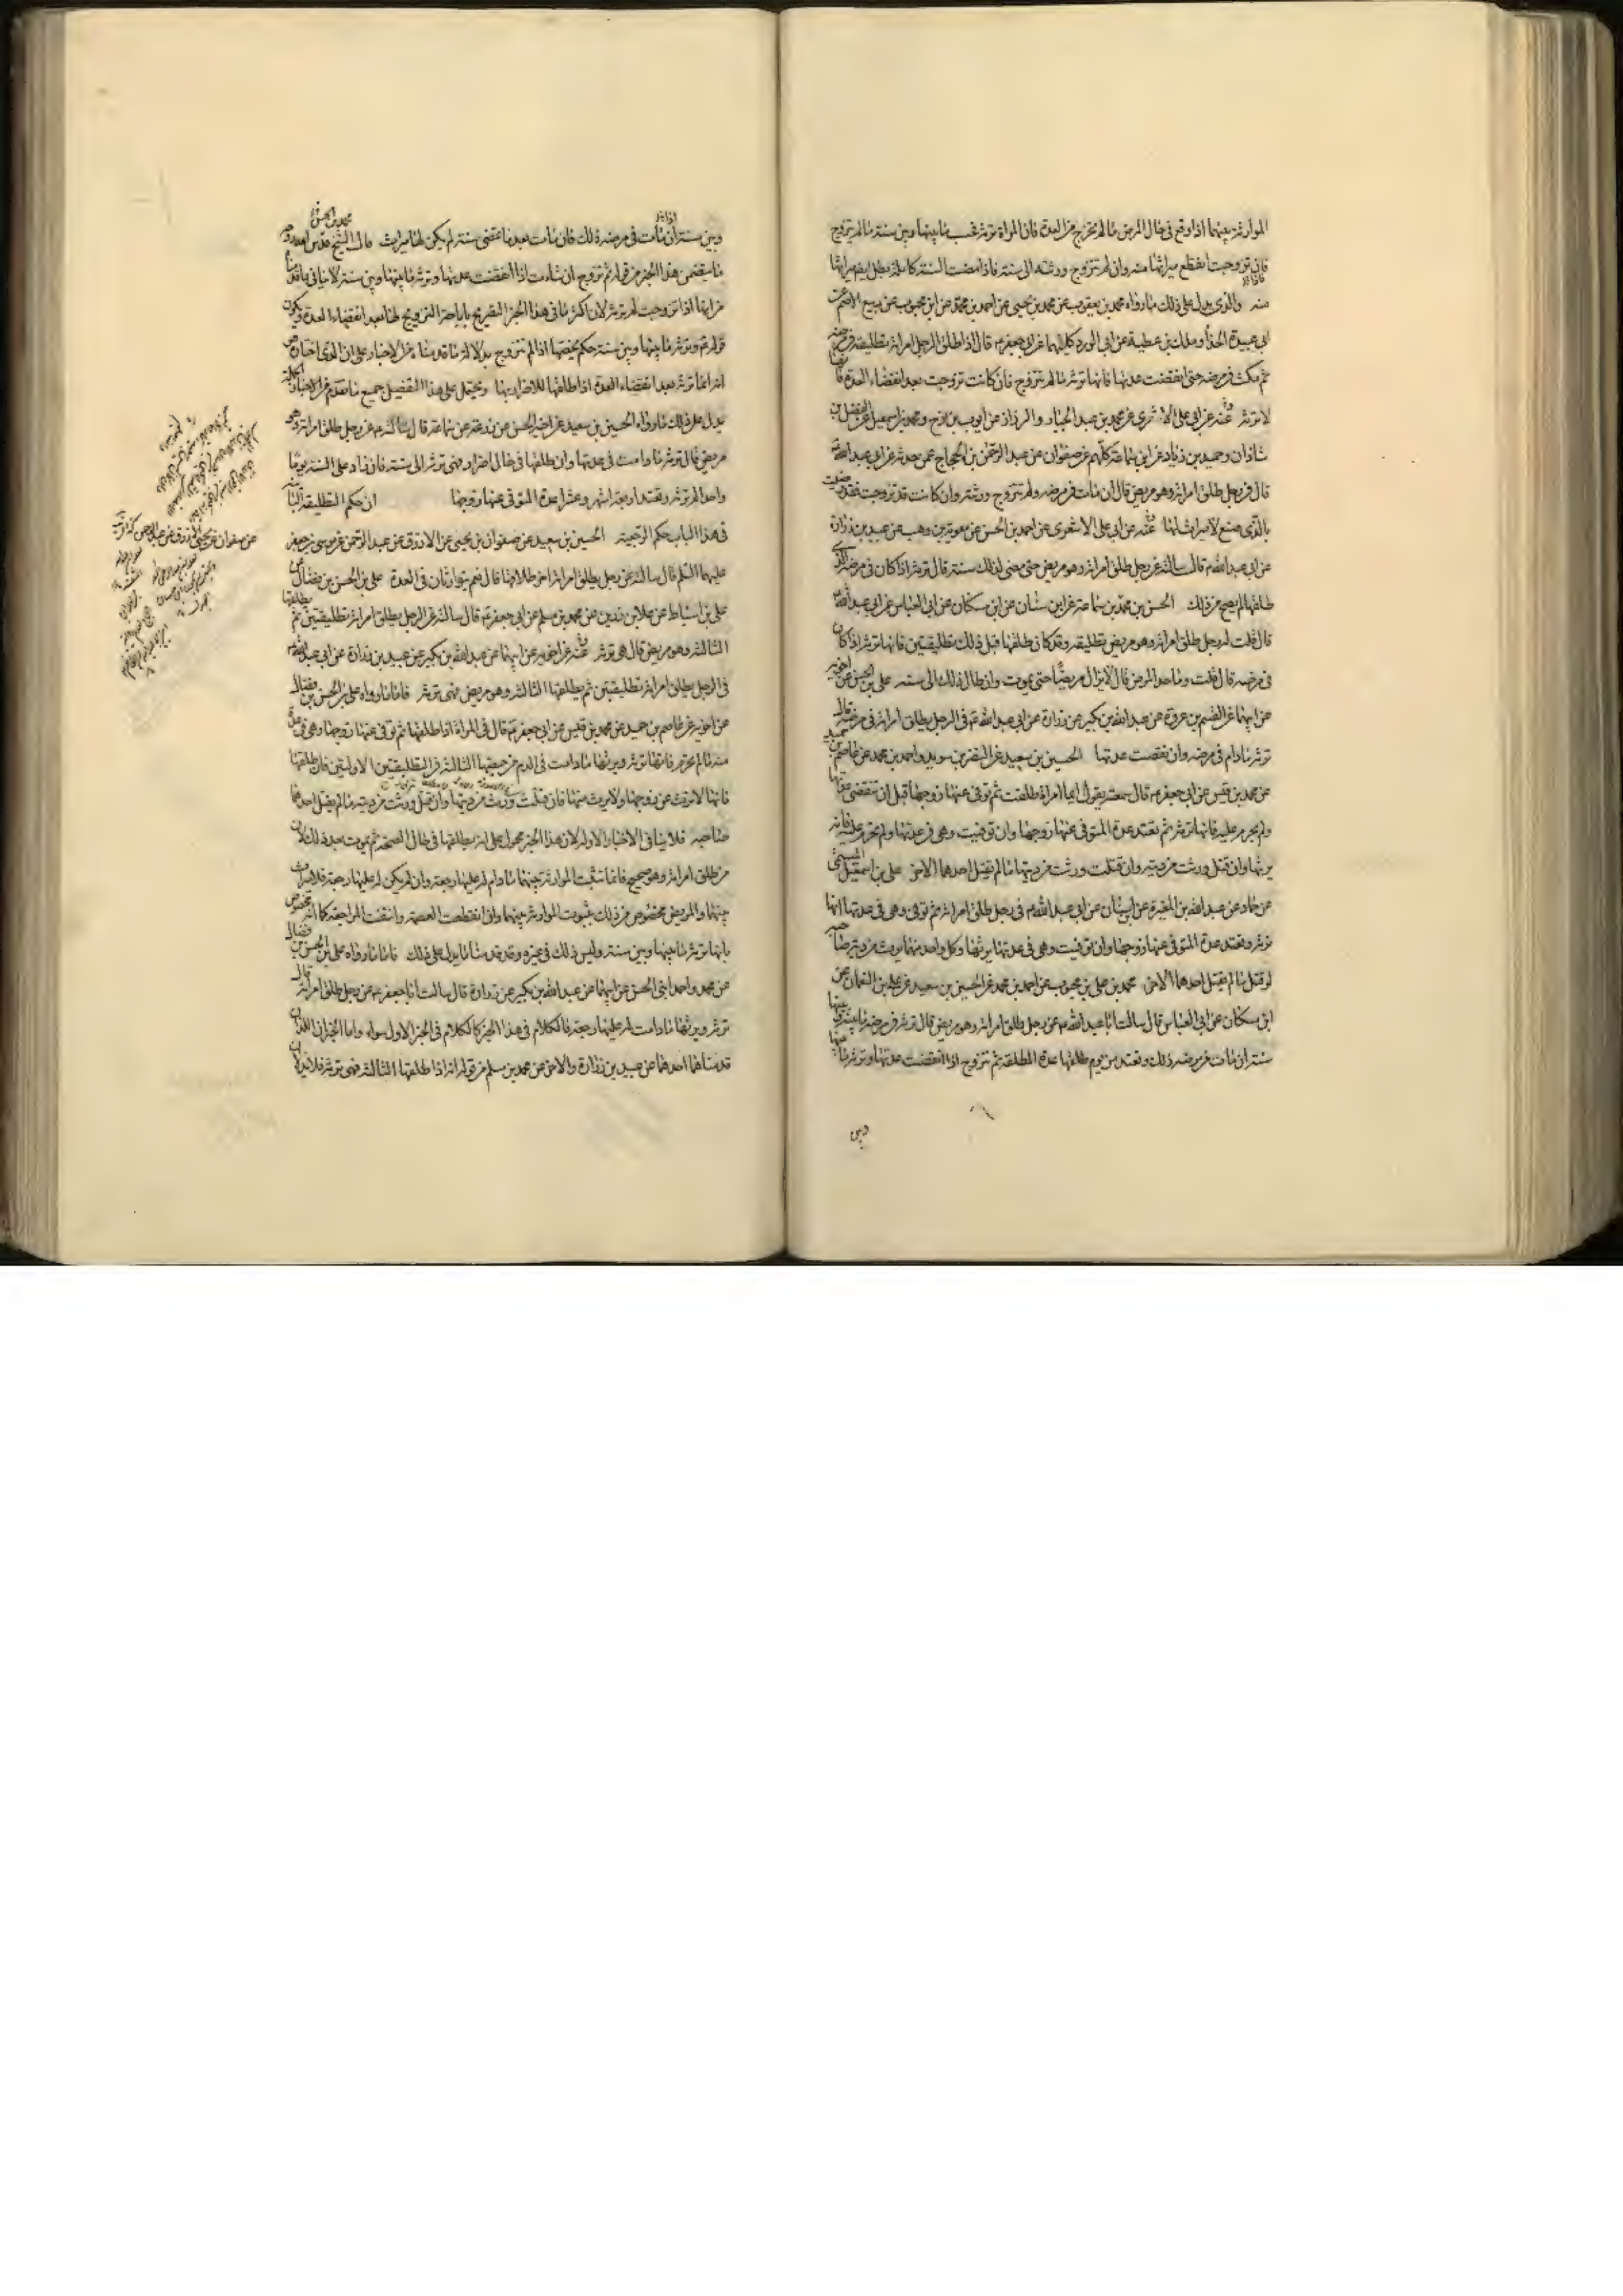 الموارثة بينهما اذا وقع فى حال المرض ما لم تخرج من العدة فان المراة ترثه بينها وبين سنة ما لم تتزوج
فان تزوجت انقطع ميراثها منه وان لم تتزوج ورثته الى سنة فاذا مضت السنة كاملة بطل ايضا ميراثها
منه والذى يدل على ذلك ما رواه محمد بن يعقوب عن محمد بن يحيى عن احمد بن محمد عن ابن محبوب عن ربيع الاصم عن
ابى عبيدة الحذاء وملك بن عطية عن ابى الورد كليهما عن ابى جعفر ع قال اذا طلق الرجل امراته تطليقة فى مرضه
ثم مكث فى مرضه حتى انقضت عدتها فانها ترثه ما لم تتزوج فان كانت تزوجت بعد انقضاء العدة فانها
لا ترثه عنه عن ابى على الاشعرى عن محمد بن عبد الجبار والرزاز عن ايوب بن نوح ومحمد بن اسمعيل عن الفضل بن
شاذان وحميد بن زياد عن ابن سماعة كلهم عن صفوان عن عبد الرحمن بن الحجاج عمن حدثه عن ابى عبد الله ع
قال فى رجل طلق امراته وهو مريض قال ان مات فى مرضه ولم تتزوج ورثته وان كانت قد تزوجت فقد رضيت
بالذى صنع لا ميراث لها عنه عن ابى على الاشعرى عن احمد بن الحسن عن معوية بن وهب عن عبيد بن زرارة
عن ابى عبد الله ع قال سالته عن رجل طلق امراته وهو مريض حتى مضى لذلك سنة قال ترثه اذا كان فى مرضه الذى
طلقها لم يصح من ذلك الحسن بن محمد بن سماعة عن ابن سنان عن ابن مسكان عن ابى العباس عن ابى عبد الله ع
قال قلت له رجل طلق امراته وهو مريض تطليقة وقد كان طلقها قبل ذلك تطليقتين قال فانها ترثه اذا كان
فى مرضه قال قلت وما حد المرض قال لا يزال مريضا حتى يموت وان طال ذلك الى سنة على بن الحسن عن اخويه
عن ابيهما عن القسم بن عروة عن عبد الله بن بكير عن زرارة عن ابى عبد الله ع فى الرجل يطلق امراته فى مرضه قال
ترثه ما دام فى مرضه وان انقضت عدتها الحسين بن سعيد عن النضر بن سويد واحمد بن محمد عن عاصم بن حميد
عن محمد بن قيس عن ابى جعفر ع قال سمعته يقول ايما امراة طلقت ثم توفى عنها زوجها قبل ان تنقضى عدتها
ولم يحرم عليه فانها ترثه ثم تعتد عدة المتوفى عنها زوجها وان توفيت وهى فى عدتها ولم يحرم عليه فانه
يرثها وان قتل ورثت من ديته وان قتلت ورث من ديتها ما لم يقتل احدهما الاخر على بن اسمعيل الميثمى
عن حماد عن عبد الله بن المغيرة عن ابن سنان عن ابى عبد الله ع فى رجل طلق امراته ثم توفى وهى فى عدتها انها
ترثه وتعتد عدة المتوفى عنها زوجها وان توفيت وهى فى عدتها يرثها وكل واحد منهما يرث من دية صاحبه
لو قتل ما لم يقتل احدهما الاخر محمد بن على بن محبوب عن احمد بن محمد عن الحسين بن سعيد عن على بن النعمان عن
ابن مسكان عن ابى العباس قال سالت ابا عبد الله ع عن رجل طلق امراته وهو مريض قال ترثه فى مرضه ما بينه وبين
سنة ان مات من مرضه ذلك وتعتد من يوم طلقها عدة المطلقة ثم تتزوج اذا انقضت عدتها وترثه ما بينها
وبين
وبين سنة ان مات فى مرضه ذلك فان مات بعد ما تمضى سنة لم يكن لها ميراث قال الشيخ قدس الله روحه
ما يتضمن هذا الخبر من قوله ثم تتزوج ان شاءت اذا انقضت عدتها وترثه ما بينها وبين سنة لا ينافى ما قلناه
من انها اذا تزوجت لم ترثه لان اكثر ما فى هذا الخبر التصريح باباحة التزويج لها بعد انقضاء العدة ويكون
قوله ع وترثه ما بينها وبين سنة حكم يخصها اذا لم تتزوج بدلالة ما قدمناه من الاخبار على ان الذى اختاره هو
انه انما ترثه بعد انقضاء العدة اذا طلقها للاضرار بها ويحمل على هذا التفصيل جميع ما تقدم من الاخبار
يدل على ذلك ما رواه الحسين بن سعيد عن اخيه الحسن عن زرعة عن سماعة قال سالته ع عن رجل طلق امراته وهو
مريض قال ترثه ما دامت فى عدتها وان طلقها فى حال اضرار فهى ترثه الى سنة فان زاد على السنة يوما
واحدا لم ترثه وتعتد اربعة اشهر وعشرا عدة المتوفى عنها زوجها ان حكم التطليقة الثانية
فى هذا الباب حكم الرجعية الحسين بن سعيد عن صفوان بن يحيى عن الازرق عن عبد الرحمن عن موسى بن جعفر
عليهما السلم قال سالته عن رجل يطلق امراته اخر طلاقها قال نعم يتوارثان فى العدة على بن الحسن بن فضال عن
على بن اسباط عن علا بن رزين عن محمد بن مسلم عن ابى جعفر ع قال سالته عن الرجل يطلق امراته تطليقتين ثم يطلقها
الثالثة وهو مريض قال هى ترثه عنه عن اخويه عن ابيهما عن عبد الله بن بكير عن عبيد بن زرارة عن ابى عبد الله ع
فى الرجل يطلق امراته تطليقتين ثم يطلقها الثالثة وهو مريض فهى ترثه فاما ما رواه على بن الحسن بن فضال
عن اخويه عن عاصم بن حميد عن محمد بن قيس عن ابى جعفر ع قال فى المراة اذا طلقها ثم توفى عنها زوجها وهى فى عدة
منه ما لم تحرم فانها ترثه ويرثها ما دامت فى الدم من حيضتها الثالثة فى التطليقتين الاولتين فان طلقها
فانها لا ترث من زوجها ولا يرث منها فان قتلت ورث من ديتها وان قتل ورثت من ديته ما لم يقتل احدهما
صاحبه فلا ينافى الاخبار الاولة لان هذا الخبر محمول على انه يطلقها فى حال الصحة ثم يموت بعد ذلك لان
من طلق امراته وهو صحيح فانما تثبت الموارثة بينهما ما دام له عليها رجعة وان لم يكن له عليها رجعة فلا ميراث
بينهما والمريض مخصوص من ذلك بثبوت الموارثة بينهما وان انقطعت العصمة وانتفت المراجعة كما انه مخصوص
بانها ترثه ما بينها وبين سنة وليس ذلك فى غيره وقد قدمنا ما يدل على ذلك فاما ما رواه على بن الحسن بن فضال
عن محمد واحمد ابنى الحسن عن ابيهما عن عبد الله بن بكير عن زرارة قال سالت ابا جعفر ع عن رجل طلق امراته قال
ترثه ويرثها ما دامت له عليها رجعة فالكلام فى هذا الخبر كالكلام فى الخبر الاول سواء واما الخبران اللذان
قدمناهما احدهما عن عبيد بن زرارة والاخر عن محمد بن مسلم من قوله انه اذا طلقها الثالثة فهى ترثه فلا